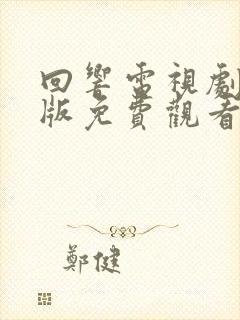 回響電視劇
版免費觀看
鄭健